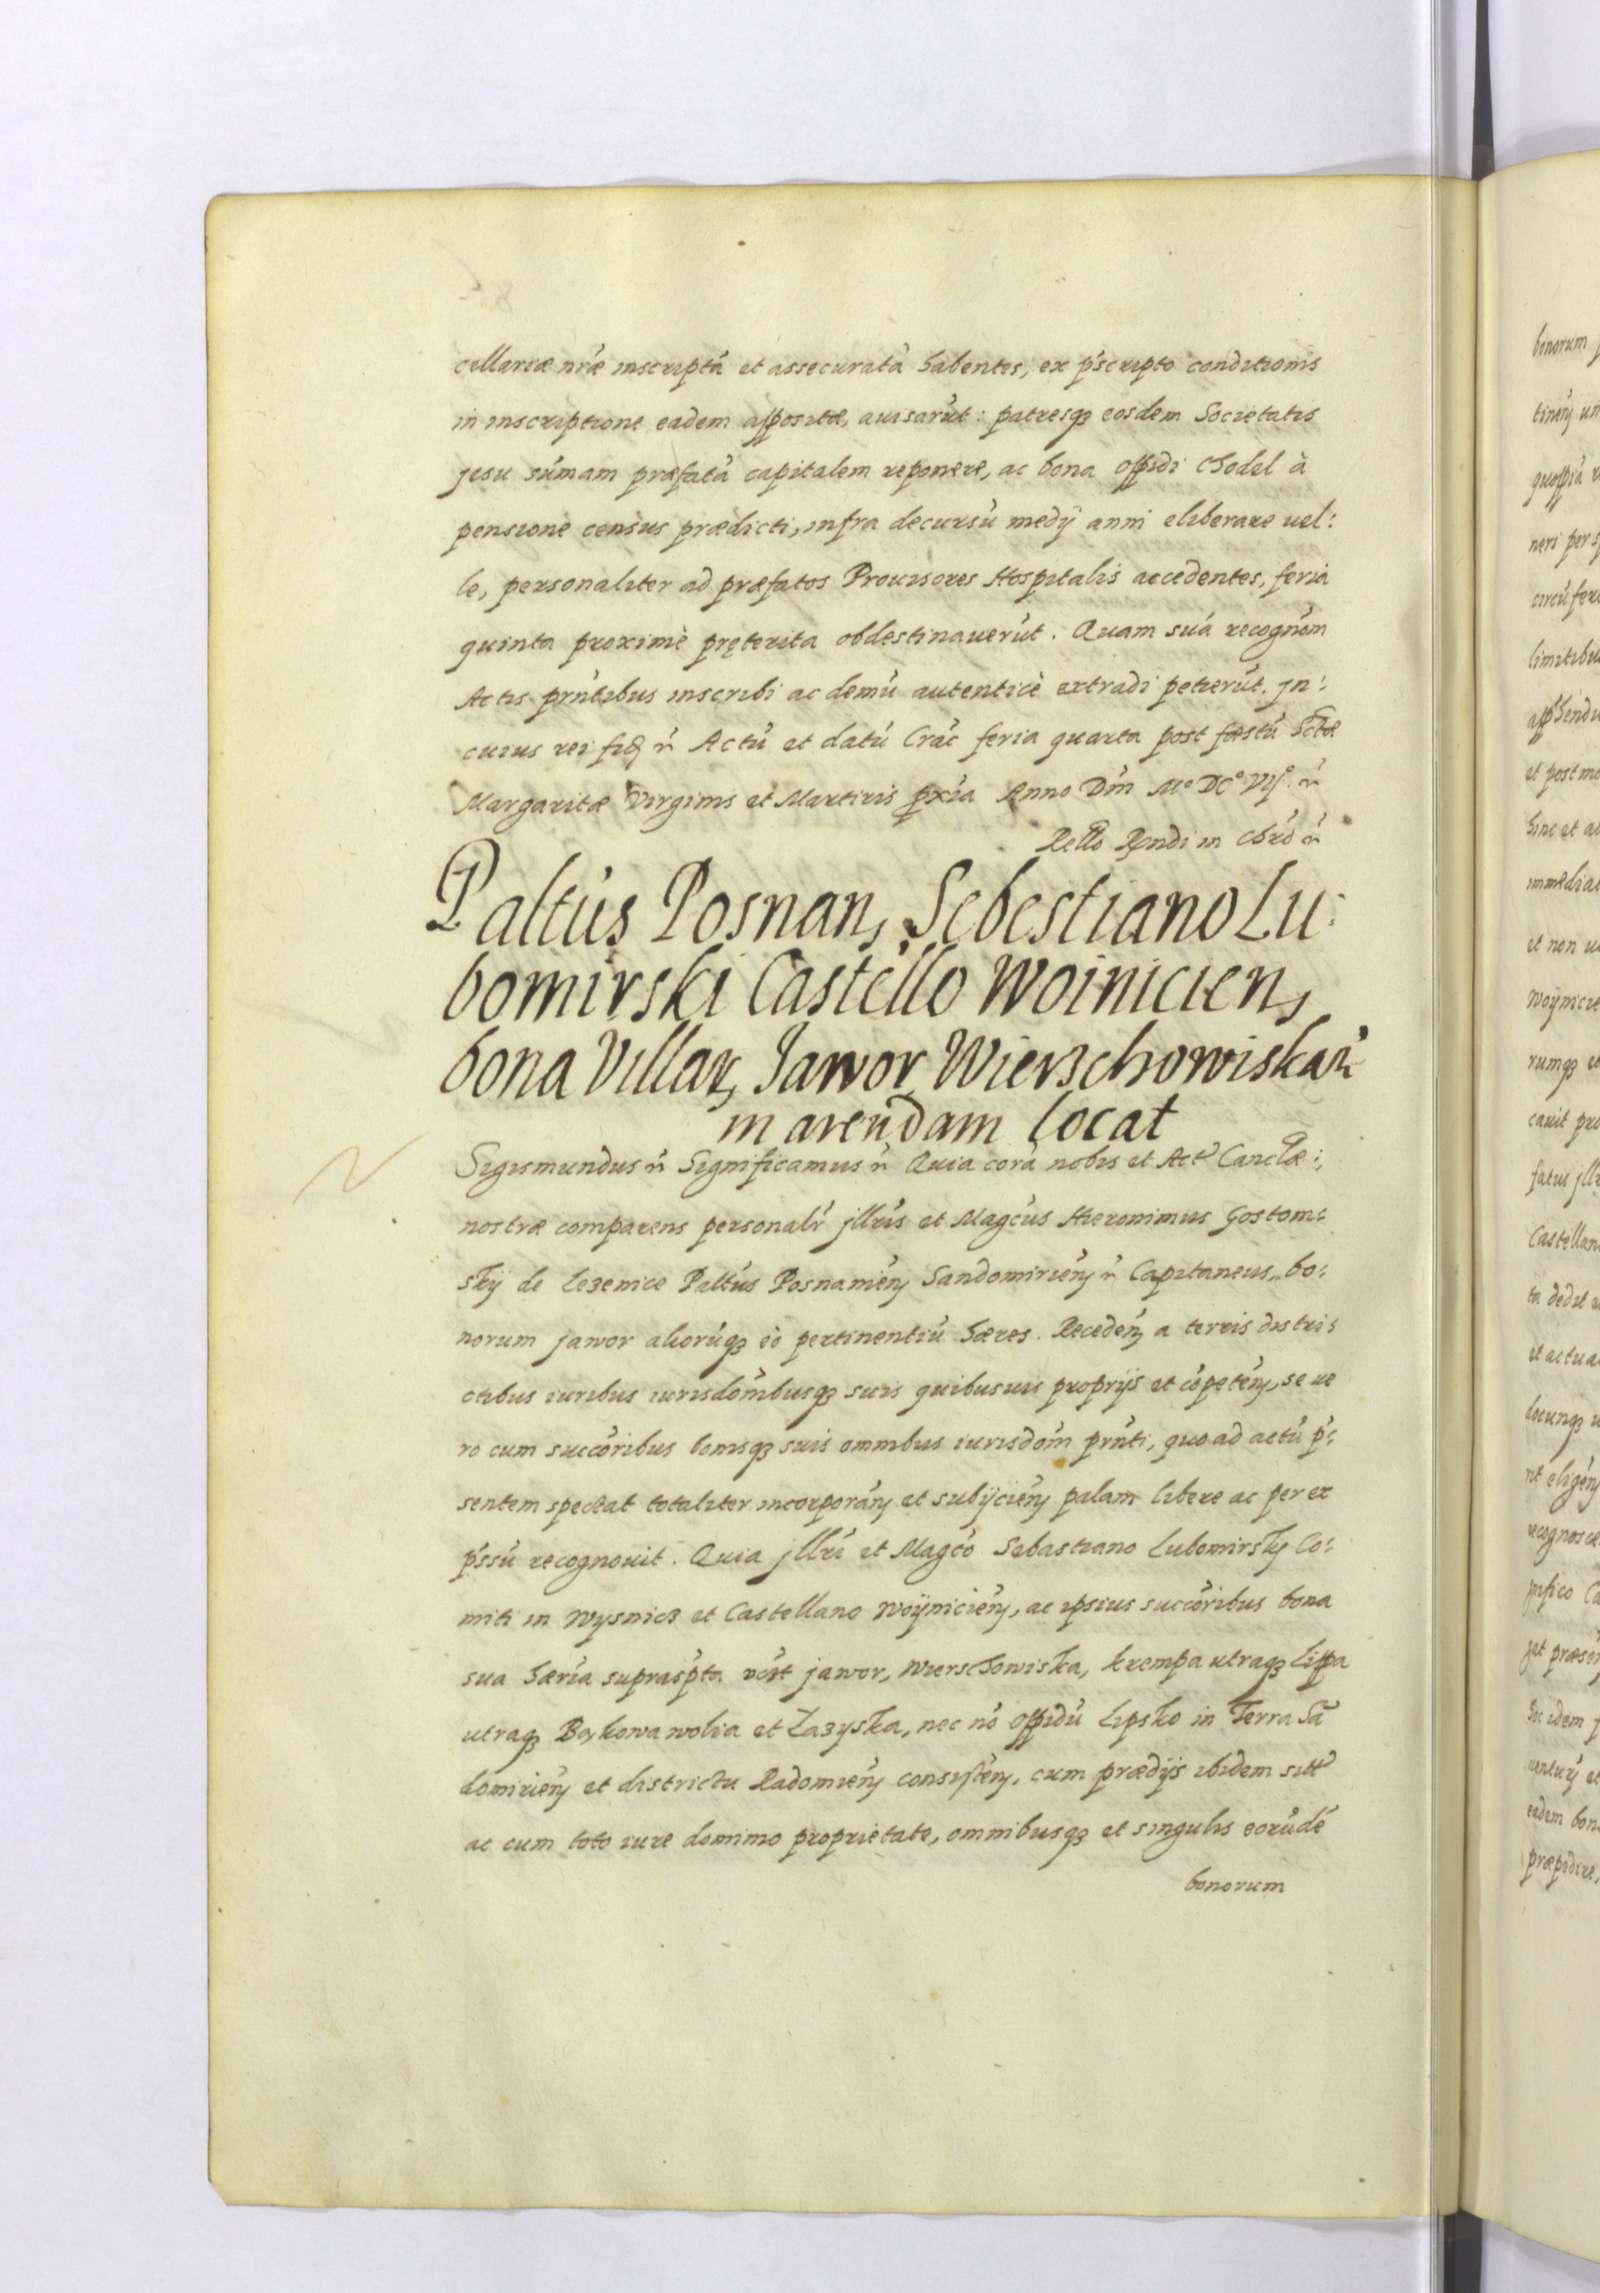 cellariæ nr̃æ inscriptã et assecuratã habentes, ex p̃scripto conditionis
in inscriptione eadem appositæ, auisarũt: patresqꝫ eosdem Societatis
Jesu sũmam præfatã capitalem reponere, ac bona oppidi Chodel à
pensione census prædicti, infra decursũ medij anni eliberare uel:
le, personaliter ad præfatos Prouisores Hospitalis accedentes, feria
quinta proximè pręterita obdestinauerũt. Quam suã recognõm
Actis prñtibus inscribi ac demũ autenticè extradi petierũt. Jn:
cuius rei fid̃ ẽ Actũ et datũ Crac̃ feria quarta post fæstũ Sctæ
Margaritæ Virginis et Martiris px̃ia Anno Dñi Mº DCº VIJº ẽ
Rello Rñdi in Chro ẽ
Paltũs Posnan, Sebestiano Lu:
bomirski Castello Woinicien,
bona Villar, Jawor Wierschowiska ẽ
in arendam locat
Sigismundus ẽ Significamus ẽ Quia corã nobis et Act Canclæ:
nostræ comparens personalr̃ Jllrĩs et Magcũs Hieronimus Gostom:
skÿ de Lezenice Paltũs Posnamieñ Sandomirieñ ẽ Capitaneus, bo:
norum Jawor aliorũqꝫ eò pertinentiũ hæres. Recedeñ a terris distri:
ctibus iuribus iurisdõnibusqꝫ suis quibusuis proprijs et cõpeteñ, se ue
ro cum succõribus bonisqꝫ suis omnibus iurisdõni prñti, quo ad actũ p̃:
sentem spectat totaliter incorporañ et subijcieñ palam libere ac per ex
p̃ssũ recognouit. Quia Jllrĩ et Magcõ Sebastiano Lubomirsky Co:
miti in Wysnicz et Castellano Woÿnicieñ, ac ipsius succõribus bona
sua hærĩa suprasp̃ta. vcz̃t Jawor, Wierschowiska, krempa utraqꝫ Lippa
utraqꝫ Boykowa wolia et Łazyska, nec nõ oppidũ Lipsko in Terra Sã
domirieñ et districtu Radomieñ consisteñ, cum prædijs ibidem sitt
ac cum toto iure dominio proprietate, omnibusqꝫ et singulis eorũdẽ
bonorum